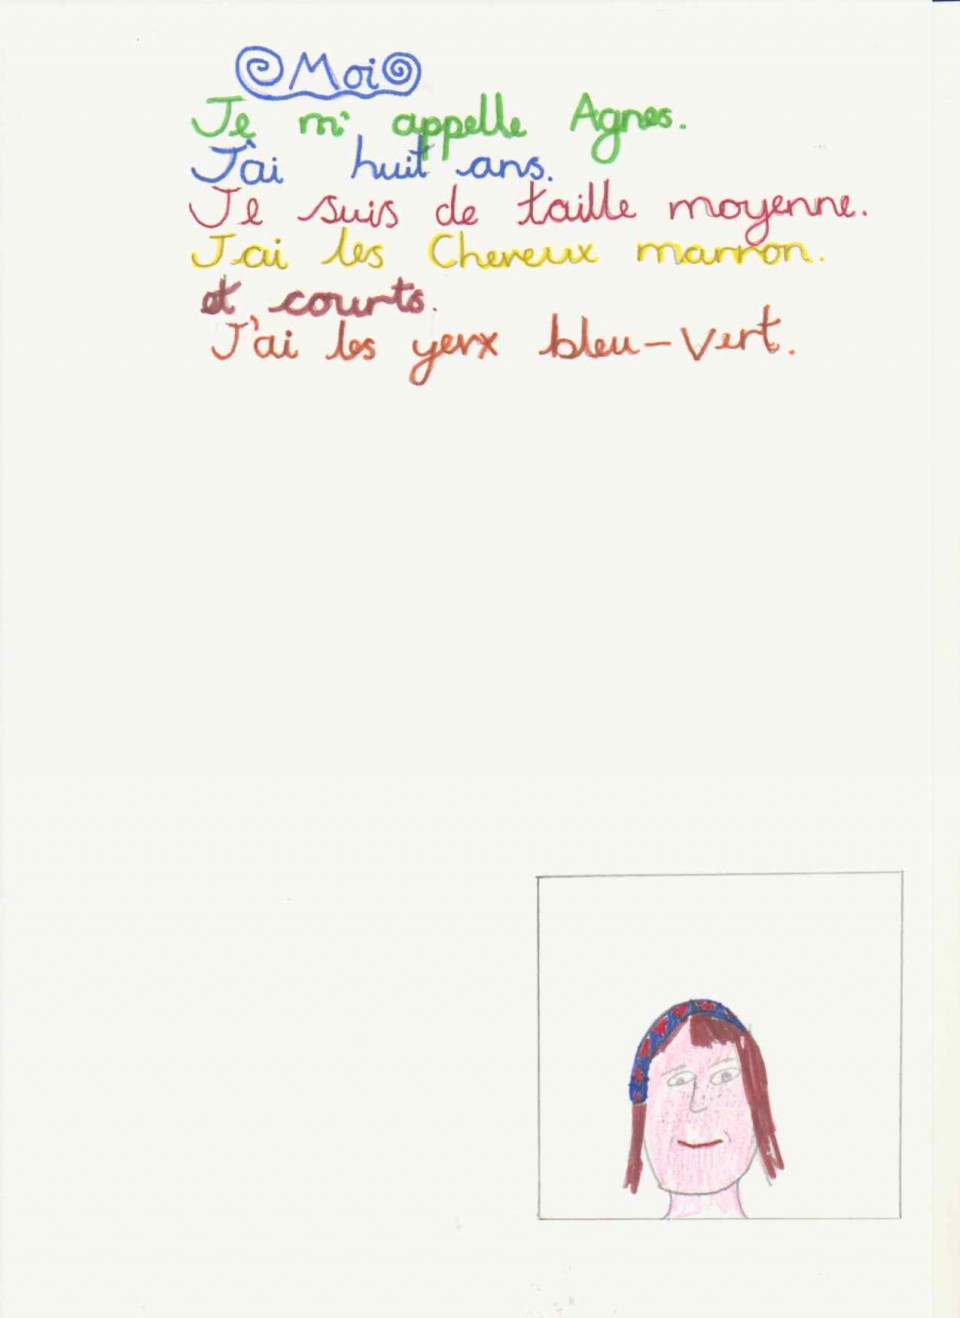 Moi
Je m'appelle Agnes.
J'ai huit ans.
Je suis de taille moyenne.
J'ai les Cheveux marron.
et courts.
J'ai les yeux bleu-vert.